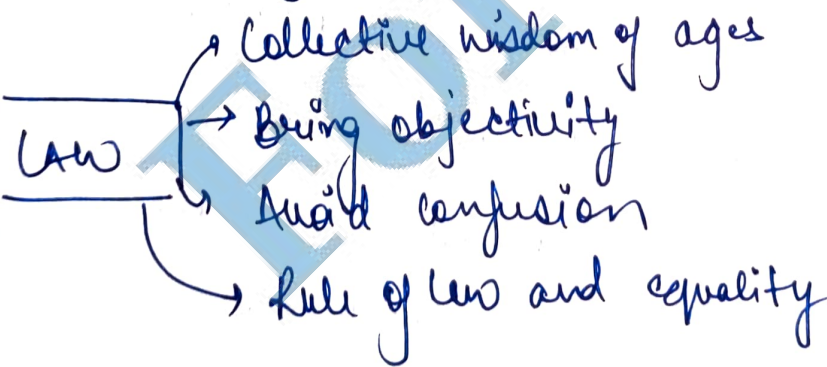 Collective wisdom of ages
Bring objectivity
LAW
Avoid confusion
Rule of law and equality